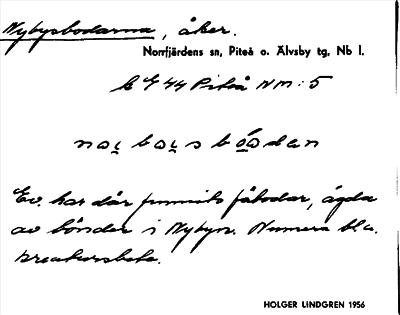 Nybysbodarna, åker.
Norrfjärdens sn, Piteå o. Älvsby tg, Nb l.
Piteå NM:5
Ev. har där funnits fäbodar, ägda
av bönder i Nybyn. Numera bl.a.
kreatursbete.
HOLGER LINDGREN 1956